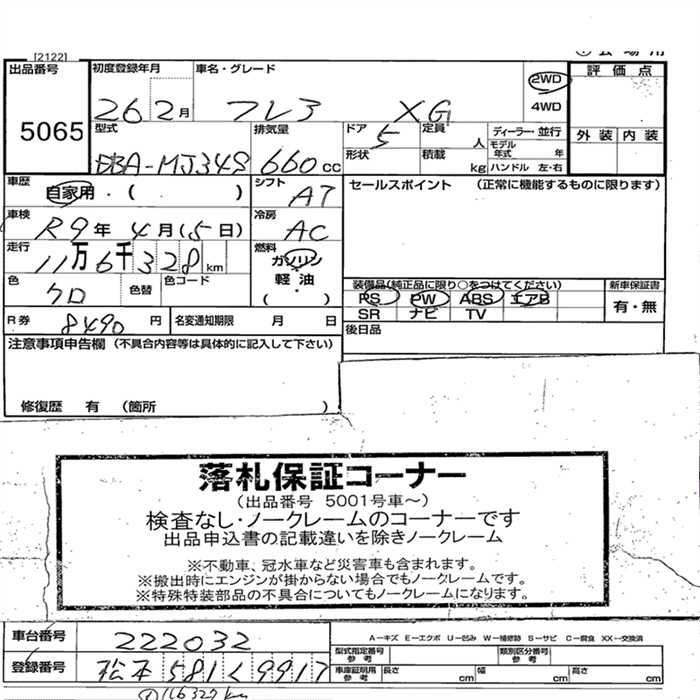 [2122]
出品番号 5065
初度登録年月 26 2月
車名・グレード フレア XG
2WD
4WD
評価点
外装 内装
型式 EBA-MJ34S
排気量 660cc
ドア 5
定員 人
形状
積載 kg
ディーラー・並行
モデル年式 年
ハンドル 左・右
車歴 自家用 ・ ( )
シフト AT
セールスポイント (正常に機能するものに限ります)
車検 R9年 4月(5日)
冷房 AC
走行 11万6千328km
燃料 ガソリン
軽油
( ・ )
色 クロ 色替 色コード
装備品(純正品に限り○をつけてください)
PS PW ABS エアB
SR ナビ TV
新車保証書
有・無
R券 8490円
名変通知期限 月 日
後日品
注意事項申告欄 (不具合内容等は具体的に記入して下さい)
修復歴 有 (箇所 )
落札保証コーナー
(出品番号 5001号車~)
検査なし・ノークレームのコーナーです
出品申込書の記載違いを除きノークレーム
※不動車、冠水車など災害車も含まれます。
※搬出時にエンジンが掛からない場合でもノークレームです。
※特殊特装部品の不具合についてもノークレームになります。
車台番号 222032
A−キズ E−エクボ U−凹み W−補修跡 S−サビ C−腐食 XX−交換済
登録番号 松本 581 く 9917
型式指定番号参考
類別区分番号参考
車庫証明用参考 長さ cm 幅 cm 高さ cm
116327km